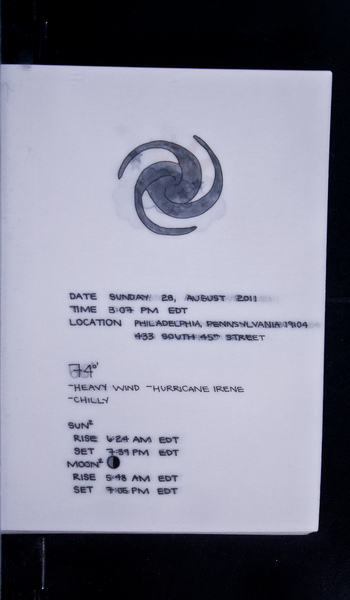 DATE SUNDAY 28, AUGUST 2011
TIME 3:07 PM EDT
LOCATION PHILADELPHIA, PENNSYLVANIA 19104
433 SOUTH 45TH STREET
74°
~HEAVY WIND ~HURRICANE IRENE
~CHILLY
SUN²
RISE 6:24 AM EDT
SET 7:39 PM EDT
MOON²
RISE 5:48 AM EDT
SET 7:05 PM EDT